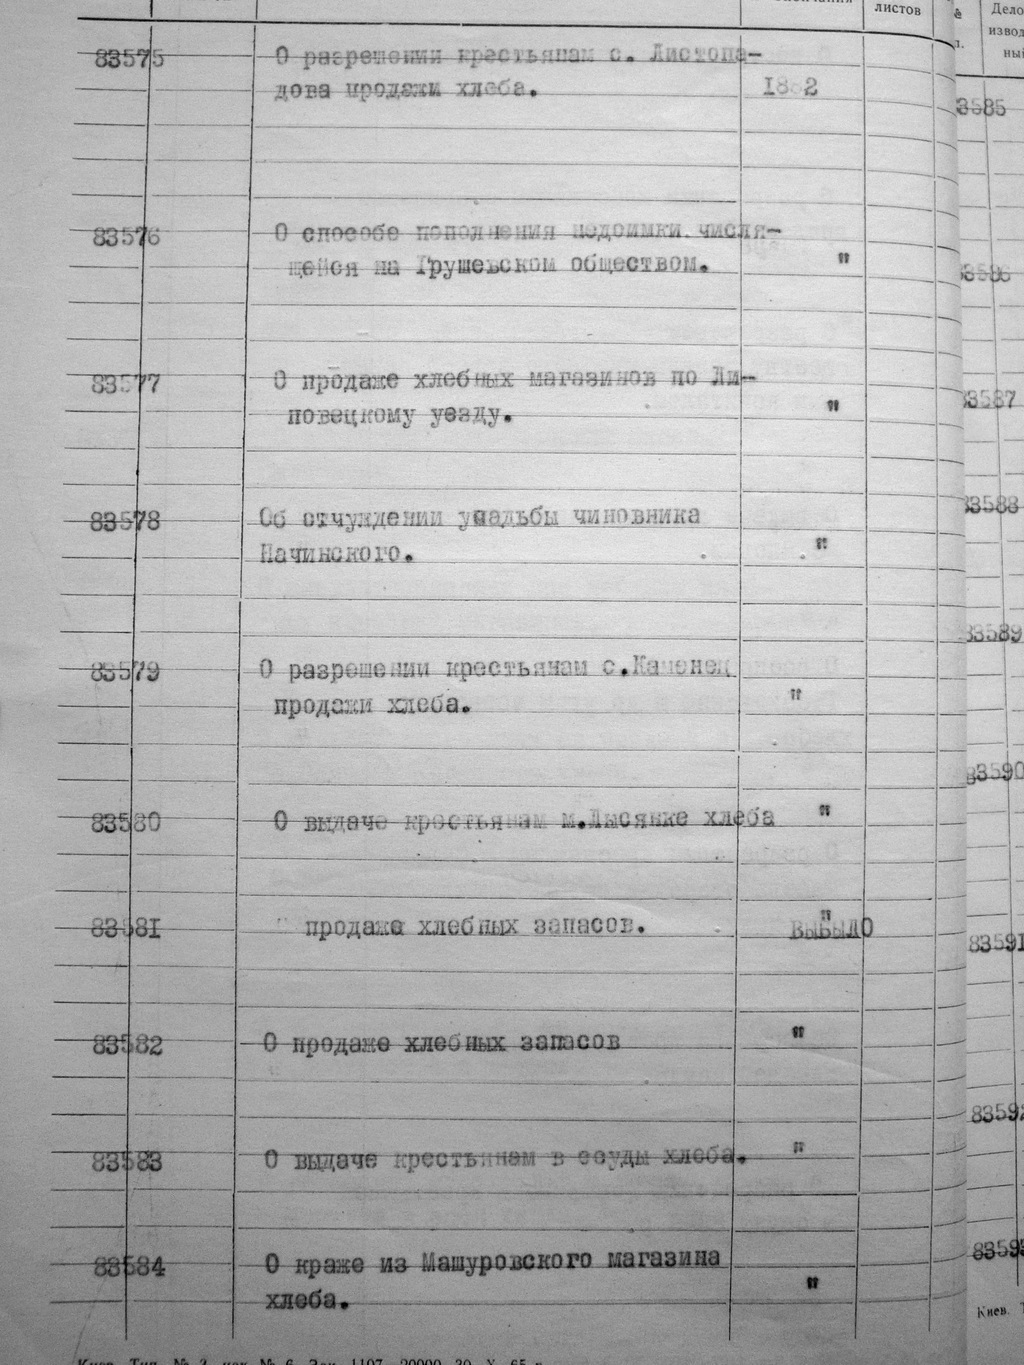 листов
№
Дело
извод
ный
83575 О разрешении крестьянам с. Листопа-
дова продажи хлеба. 1882
83576 О способе пополнения недоимки числя-
щейся на Грушевском обществом. "
83577 О продаже хлебных магазинов по Ли-
повецкому уезду. "
83578 Об отчуждении усадьбы чиновника
Начинского. "
83579 О разрешении крестьянам с.Каменец
продажи хлеба. "
83580 О выдаче крестьянам м.Лысянке хлеба "
83581 О продаже хлебных запасов. " ВЫБЫЛО
83582 О продаже хлебных запасов "
83583 О выдаче крестьянам в ссуды хлеба. "
83584 О краже из Машуровского магазина
хлеба. "
83585
83586
83587
83588
83589
83590
83591
83592
8359
Киев.
Киев. Тип. № 2, зак. № 6. Зак. 1107—20000. 30. X. 65 г.